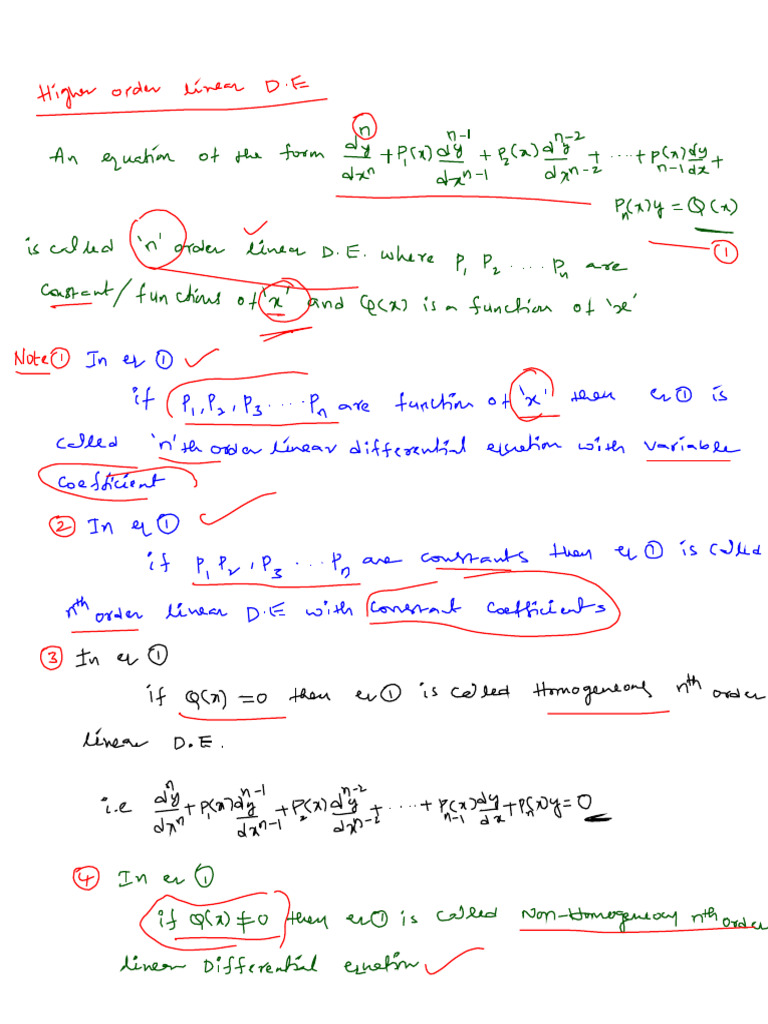 Higher order linear D.E
An equation of the form dⁿy/dxⁿ + P₁(x) dⁿ⁻¹y/dxⁿ⁻¹ + P₂(x) dⁿ⁻²y/dxⁿ⁻² + ... + Pₙ₋₁(x) dy/dx +
Pₙ(x)y = Q(x)
①
is called 'n' order linear D.E. where P₁ P₂ .... Pₙ are
constant/functions of 'x' and Q(x) is a function of 'x'
Note ① In eq ①
if P₁, P₂, P₃ .... Pₙ are function of 'x' then eq ① is
called 'n'th order linear differential equation with variable
coefficient
② In eq ①
if P₁ P₂, P₃ ... Pₙ are constants then eq ① is called
nᵗʰ order linear D.E with constant coefficients
③ In eq ①
if Q(x) = 0 then eq ① is called Homogeneous nᵗʰ order
linear D.E.
i.e dⁿy/dxⁿ + P₁(x) dⁿ⁻¹y/dxⁿ⁻¹ + P₂(x) dⁿ⁻²y/dxⁿ⁻² + .... + Pₙ₋₁(x) dy/dx + Pₙ(x)y = 0
④ In eq ①
if Q(x) ≠ 0 then eq ① is called Non-Homogeneous nᵗʰ order
linear Differential equation